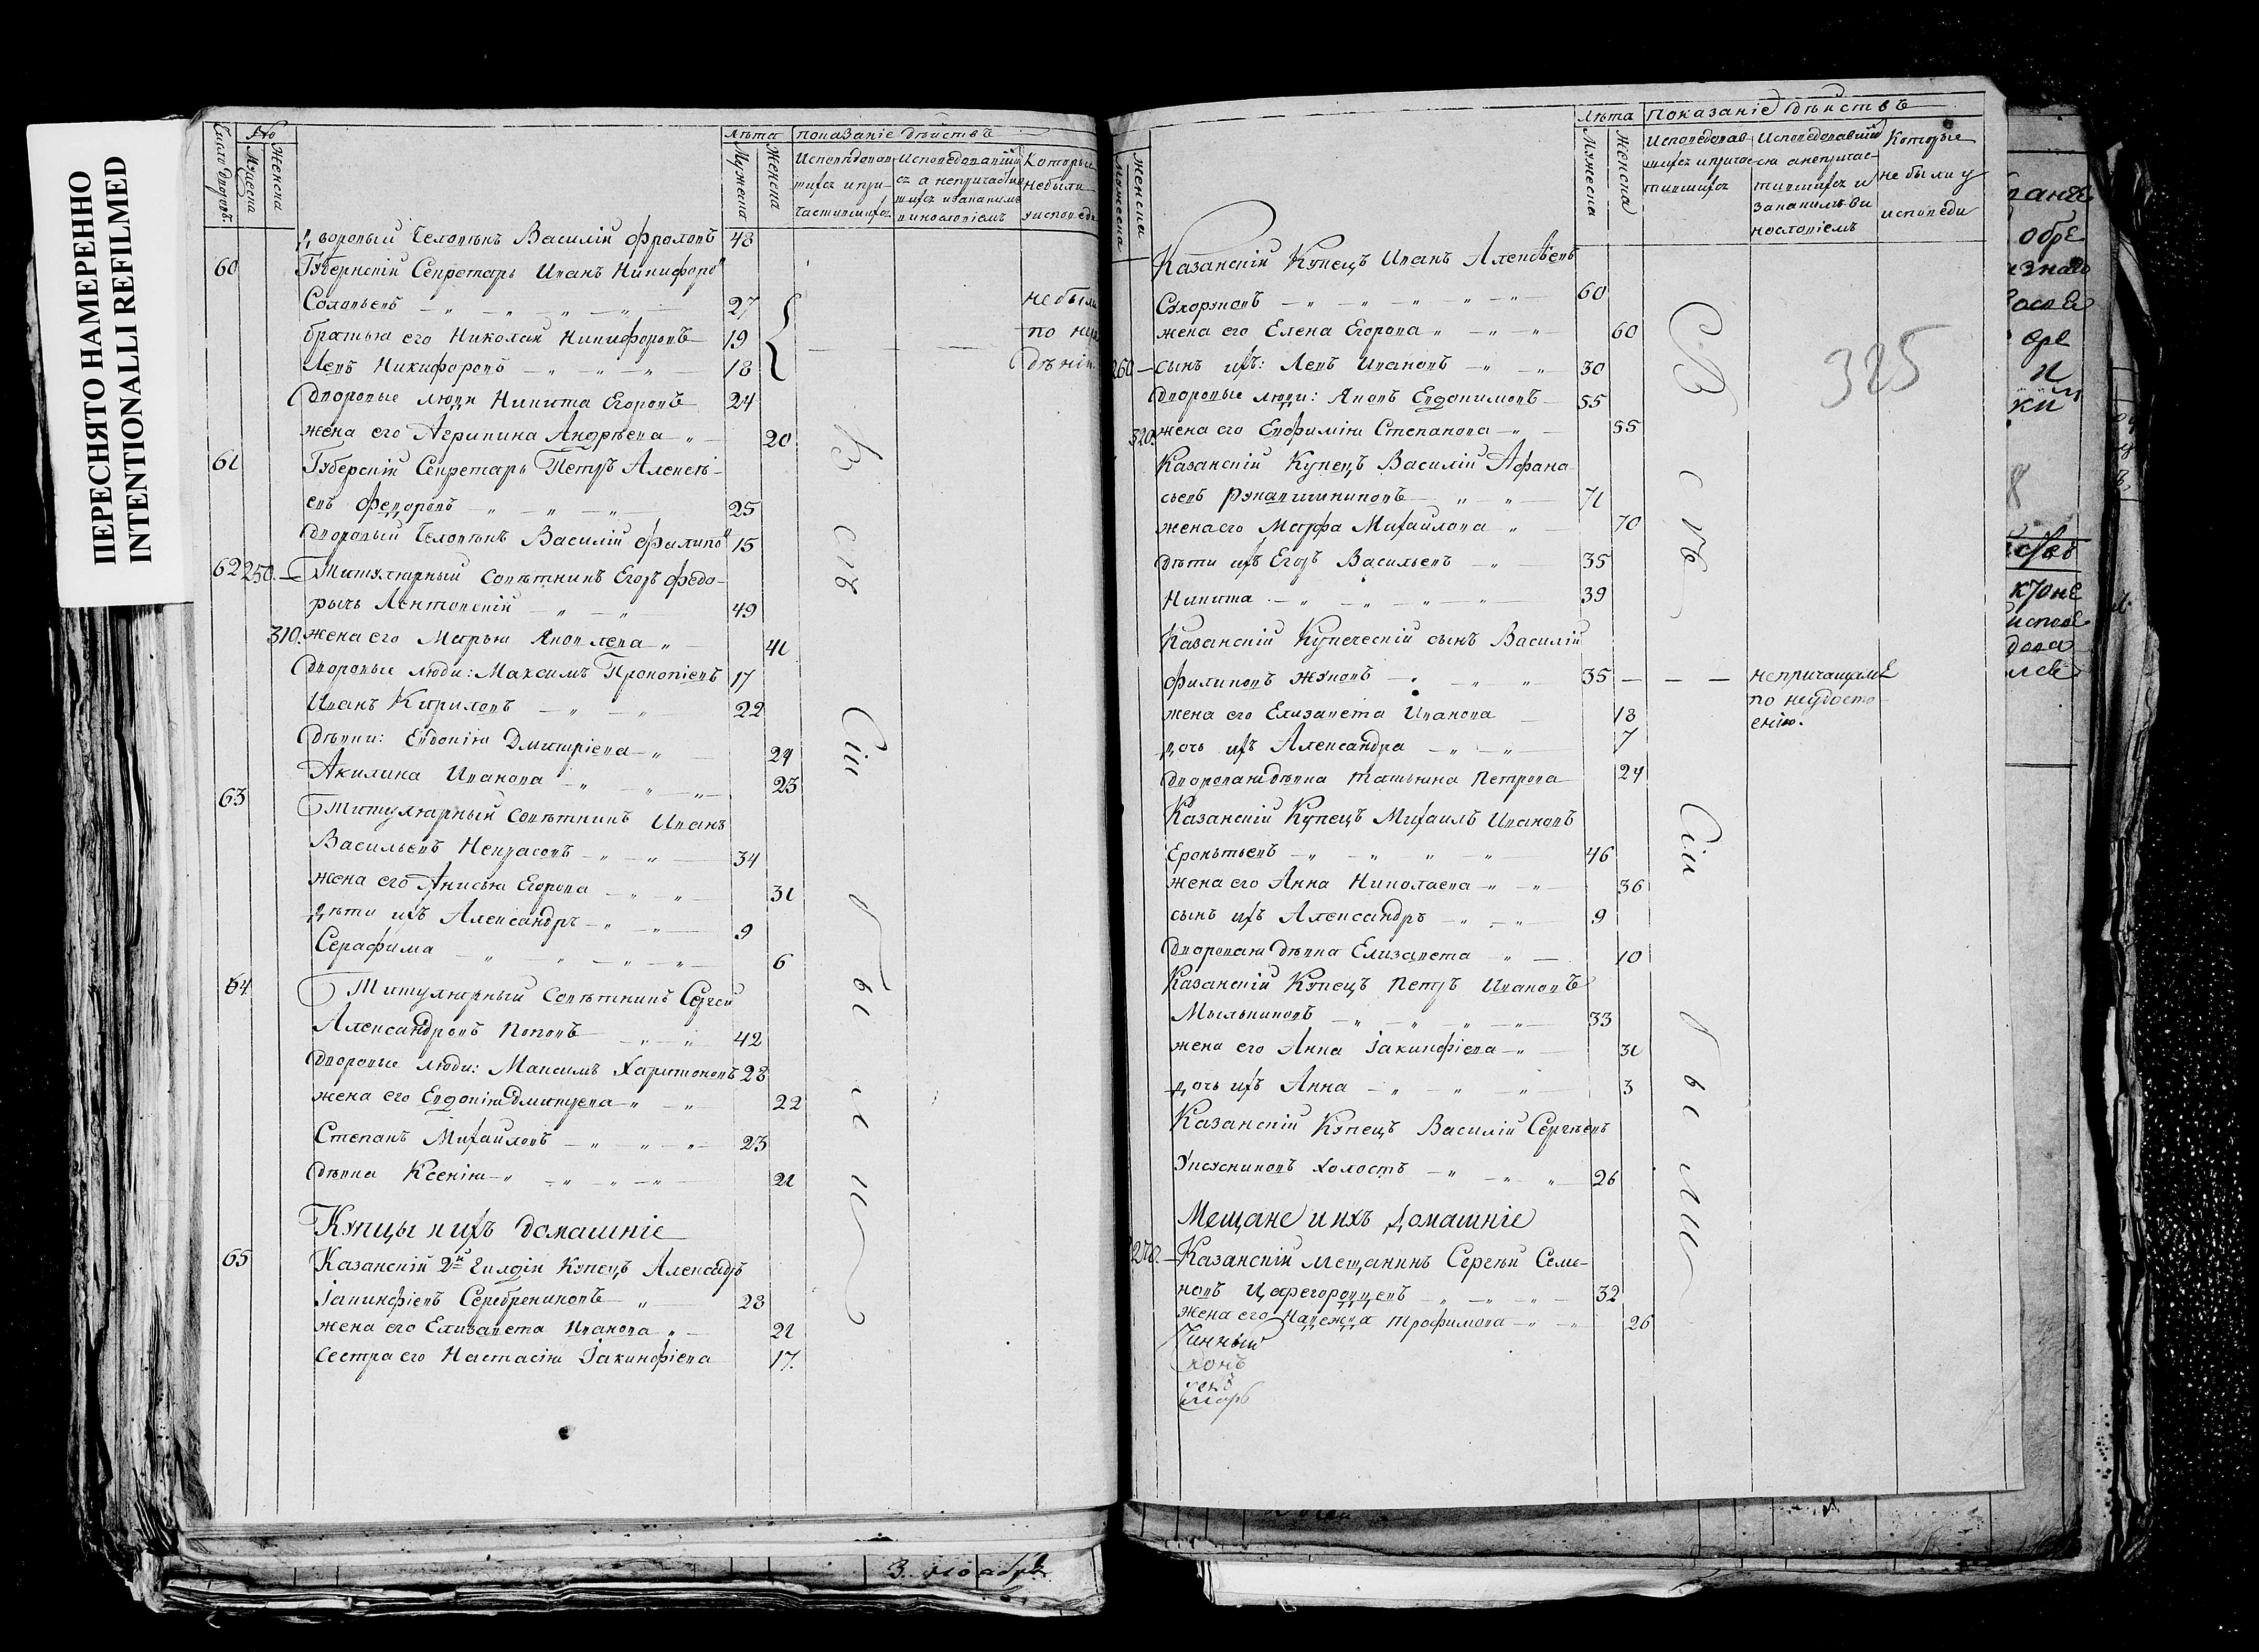 ПЕРЕСНЯТО НАМЕРЕННО
INTENTIONALLI REFILMED
Число дворовъ
Мужеска
Женска
Лѣта
Мужеска
Женска
Показаніе дѣйствъ
Которые
небыли
Дворовый Человѣкъ Василій Фроловъ 48
60 Губернскій Секретарь Иванъ Никифоро
Соловьевъ 27
братья его Николай Никифоровъ 19
Левъ Никифоровъ 18
небыли
по не
дѣнію
Дворовые люди Никита Егоровъ 24
жена его Агрипина Андрѣева 20
61 Губерскій Секретарь Петръ Алексѣ-
евъ Федоровъ 25
Дворовый Человѣкъ Василій Филипо 15
62 250. Титулярный Совѣтникъ Егоръ Федо-
рычъ Лентовскій 49
310. жена его Марья Яковлева 41
Дворовые люди: Максимъ Прокопіевъ 17
Иванъ Кириловъ 22
Дѣвки: Евдокія Димитріева 24
Акилина Иванова 23
63 Титулярный Совѣтникъ Иванъ
Васильевъ Некрасовъ 34
жена его Анисья Егорова 31
дѣти ихъ Александръ 9
Серафима 6
64 Титулярный Совѣтникъ Сергей
Александровъ Поповъ 42
Дворовые люди: Максимъ Харитоновъ 28
жена его Евдокія Дмитрева 22
Степанъ Михайловъ 23
Дѣвка Ксенія 21
Купцы и ихъ домашніе
65 Казанскій 2й Гилдіи Купецъ Александръ
Іакинфіевъ Серебрениковъ 28
жена его Елизавета Иванова 21
Сестра его Настасія Іакинфіева 17.
Всѣ
Сіи
были
Женска
Мужеска
Лѣта
Мужеска
Женска
Показаніе дѣйствъ
Исповѣдовав-
шихся и прича-
тившихся
Исповѣдовавшій
ся а непричас-
тившихся и
за какимъ ви
нословіемъ
Которые
не были у
исповѣди
Казанскій Купецъ Иванъ Алексѣевъ
Сухоруковъ 60
жена его Елена Егорова 60
260 сынъ ихъ: Левъ Ивановъ 30
Дворовые люди: Яковъ Евдокимовъ 55
320. жена его Евфимія Степанова 55
Казанскій Купецъ Василій Афана
сьевъ Рукавишниковъ 71
жена его Марфа Михайлова 70
Дѣти ихъ Егоръ Васильевъ 35
Никита 39
Казанскій Купеческій сынъ Василій
Филиповъ Жуковъ 35 непричащался
по неудосто
енію.
жена его Елизавета Иванова 18
дочь ихъ Александра 7
Дворовая дѣвка Татьяна Петрова 24
Казанскій Купецъ Михаилъ Ивановъ
46
жена его Анна Николаева 36
сынъ ихъ Александръ 9
Дворовая дѣвка Елизавета 10
Казанскій Купецъ Петръ Ивановъ
Мыльниковъ 33
жена его Анна Іакинфіева 31
дочь ихъ Анна 3
Казанскій Купецъ Василій Сергѣевъ
Унжениновъ холостъ 26
Мещане и ихъ домашніе
270. Казанскій мещанинъ Сергѣй Семе-
новъ Царегородцевъ 32
жена его Надежда Трофимова 26
325
Сіи
были
3. ноабря